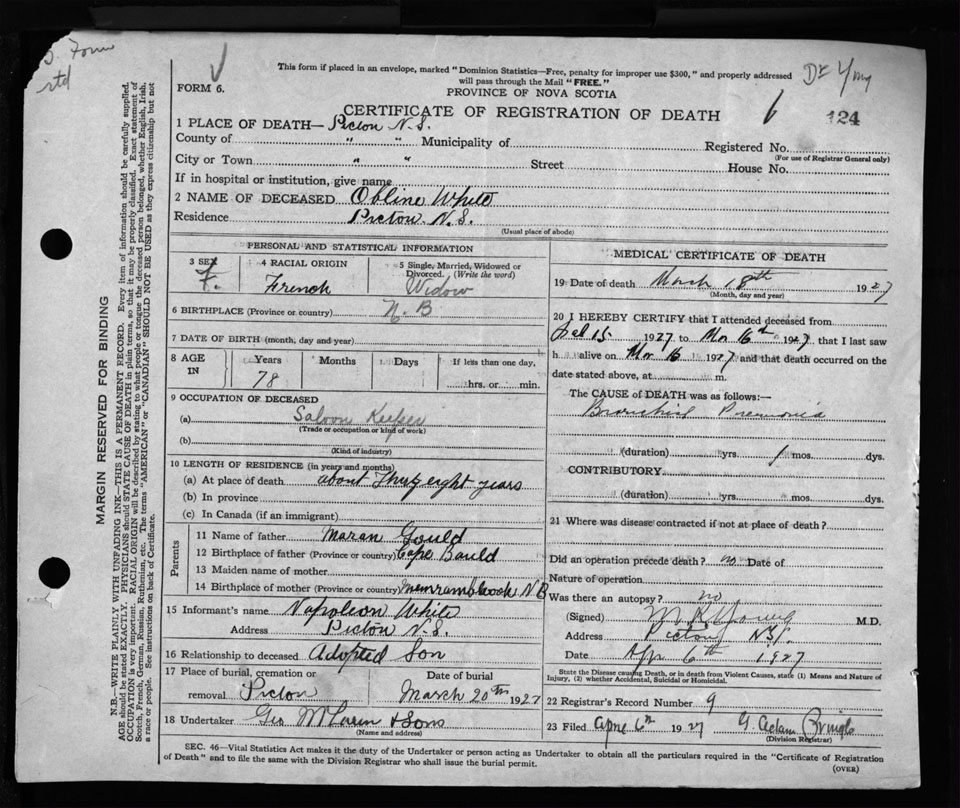 S. Form
rtd
This form if placed in an envelope, marked "Dominion Statistics—Free, penalty for improper use $300," and properly addressed
will pass through the Mail "FREE."
FORM 6.
PROVINCE OF NOVA SCOTIA
Dr Yng
CERTIFICATE OF REGISTRATION OF DEATH
6 124
1 PLACE OF DEATH— Picton N.S.
County of " " Municipality of Registered No.
(For use of Registrar General only)
City or Town " " Street House No.
If in hospital or institution, give name
2 NAME OF DECEASED Obline White
Residence Picton N.S.
(Usual place of abode)
PERSONAL AND STATISTICAL INFORMATION
3 SEX 4 RACIAL ORIGIN 5 Single, Married, Widowed or
Divorced. (Write the word)
F. French Widow
6 BIRTHPLACE (Province or country) N. B
7 DATE OF BIRTH (month, day and year)
8 AGE IN Years Months Days If less than one day,
78 hrs. or min.
9 OCCUPATION OF DECEASED
(a) Saloon Keeper
(Trade or occupation or kind of work)
(b)
(Kind of industry)
10 LENGTH OF RESIDENCE (in years and months)
(a) At place of death about Thirty eight years
(b) In province
(c) In Canada (if an immigrant)
Parents
11 Name of father Maran Gould
12 Birthplace of father (Province or country) Cape Bauld
13 Maiden name of mother
14 Birthplace of mother (Province or country) Memramkook N.B
15 Informant's name Napoleon White
Address Picton N.S.
16 Relationship to deceased Adopted Son
17 Place of burial, cremation or Date of burial
removal Picton March 20th 1927
18 Undertaker Geo & Sons
(Name and address)
MEDICAL CERTIFICATE OF DEATH
19 Date of death March 18th 1927
(Month, day and year)
20 I HEREBY CERTIFY that I attended deceased from
Feb 15 1927 to Mar 16th 1927, that I last saw
h alive on Mar 16 1927 and that death occurred on
date stated above, at m.
The CAUSE OF DEATH was as follows:—
Bronchial Pneumonia
(duration) yrs. 1 mos. dys.
CONTRIBUTORY
(duration) yrs. mos. dys.
21 Where was disease contracted if not at place of death?
Did an operation precede death? no Date of
Nature of operation
Was there an autopsy? no
(Signed) M R Young M.D.
Address Picton N.S.
Date Apr 6th 1927
State the Disease causing Death, or in death from Violent Causes, state (1) Means and Nature of
Injury, (2) whether Accidental, Suicidal or Homicidal.
22 Registrar's Record Number 9
23 Filed Apr 6th 1927 G Adam Pringle
(Division Registrar)
SEC. 46—Vital Statistics Act makes it the duty of the Undertaker or person acting as Undertaker to obtain all the particulars required in the "Certificate of Registration
of Death" and to file the same with the Division Registrar who shall issue the burial permit.
(OVER)
MARGIN RESERVED FOR BINDING
N.B.—WRITE PLAINLY WITH UNFADING INK—THIS IS A PERMANENT RECORD. Every item of information should be carefully supplied.
AGE should be stated EXACTLY. PHYSICIANS should STATE CAUSE OF DEATH in plain terms, so that it may be properly classified. Exact statement of
OCCUPATION is very important. RACIAL ORIGIN will be described by stating to what people or tongue the deceased person belonged, whether English, Irish,
Scotch, French, German, Russian, Ruthenian, etc. The terms "AMERICAN" or "CANADIAN" SHOULD NOT BE USED as they express citizenship but not
a race or people. See instructions on back of Certificate.